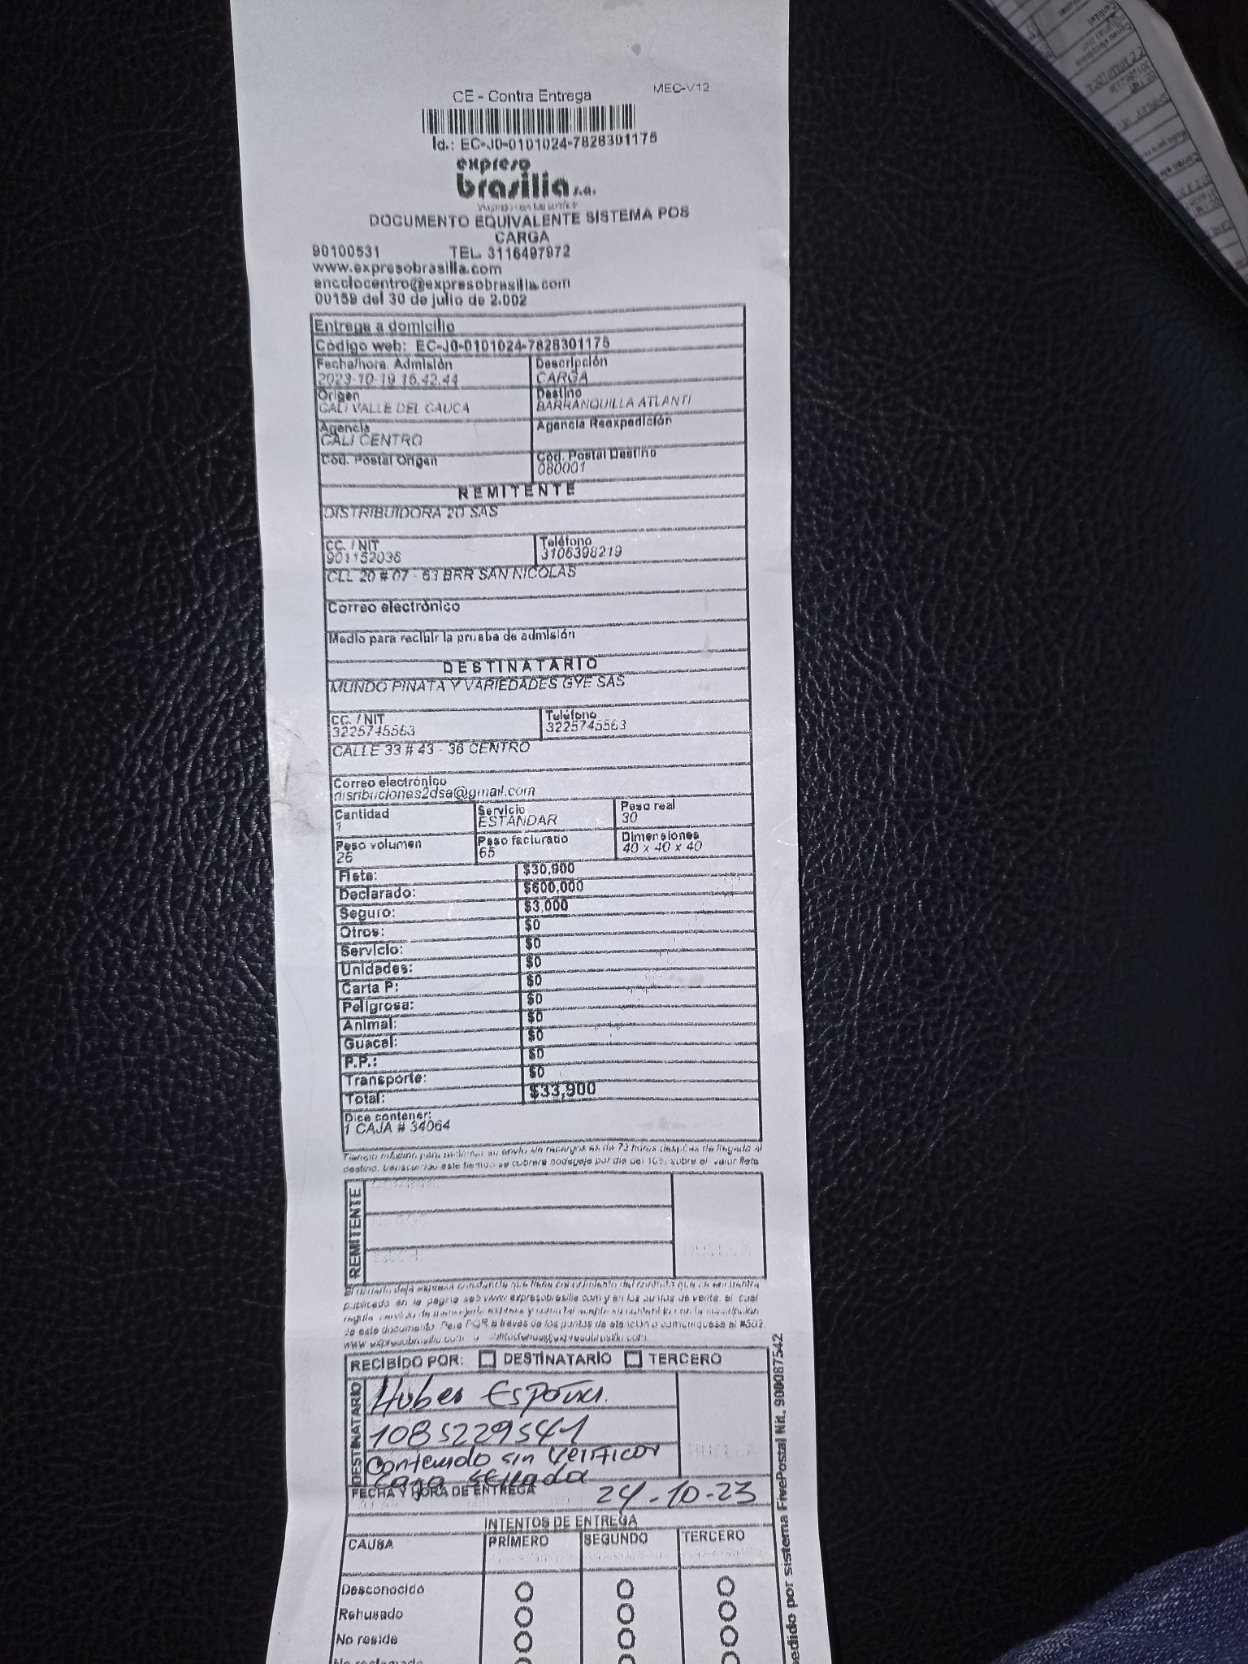 CE - Contra Entrega
MEC-V12
Id.: EC-J0-0101024-7828301175
expreso
brasilia s.a.
DOCUMENTO EQUIVALENTE SISTEMA POS
CARGA
90100531 TEL. 3116497972
www.expresobrasilia.com
encclocentro@expresobrasilia.com
00159 del 30 de julio de 2.002
Entrega a domicilio
Código web: EC-J0-0101024-7828301175
Fecha/hora. Admisión Descripción
2023-10-19 16.42.44 CARGA
Origen Destino
CALI VALLE DEL CAUCA BARRANQUILLA ATLANTI
Agencia Agencia Reexpedición
CALI CENTRO
Cód. Postal Origen Cód. Postal Destino
080001
REMITENTE
DISTRIBUIDORA 2D SAS
CC. / NIT Teléfono
901152036 3106398219
CLL 20 # 07 - 63 BRR SAN NICOLAS
Correo electrónico
Medio para recibir la prueba de admisión
DESTINATARIO
MUNDO PINATA Y VARIEDADES GYE SAS
CC. / NIT Teléfono
3225745563 3225745563
CALLE 33 # 43 - 36 CENTRO
Correo electrónico
disribuciones2dsa@gmail.com
Cantidad Servicio Peso real
1 ESTANDAR 30
Peso volumen Peso facturado Dimensiones
26 65 40 x 40 x 40
Flete: $30,900
Declarado: $600,000
Seguro: $3,000
Otros: $0
Servicio: $0
Unidades: $0
Carta P: $0
Peligrosa: $0
Animal: $0
Guacal: $0
P.P.: $0
Transporte: $0
Total: $33,900
Dice contener:
1 CAJA # 34064
Tiempo máximo para reclamar su envío sin recargos es de 72 horas después de llegada al
destino, transcurrido este tiempo se cobrará bodegaje por día del 10% sobre el valor flete
REMITENTE
publicado en la página web www.expresobrasilia.com y en los puntos de venta, el cual
de este documento. Para PQR a través de los puntos de atención o comuníquese al #502.
RECIBIDO POR: DESTINATARIO TERCERO
DESTINATARIO
Huber España.
1085229541
Contenido sin verificar
caja sellada
FECHA Y HORA DE ENTREGA 24-10-23
INTENTOS DE ENTREGA
CAUSA PRIMERO SEGUNDO TERCERO
Desconocido
Rehusado
No reside
No reclamado
edido por sistema FivePostal Nit. 900087542